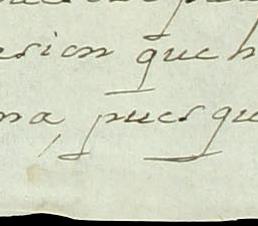 esion que h
na, pues qu